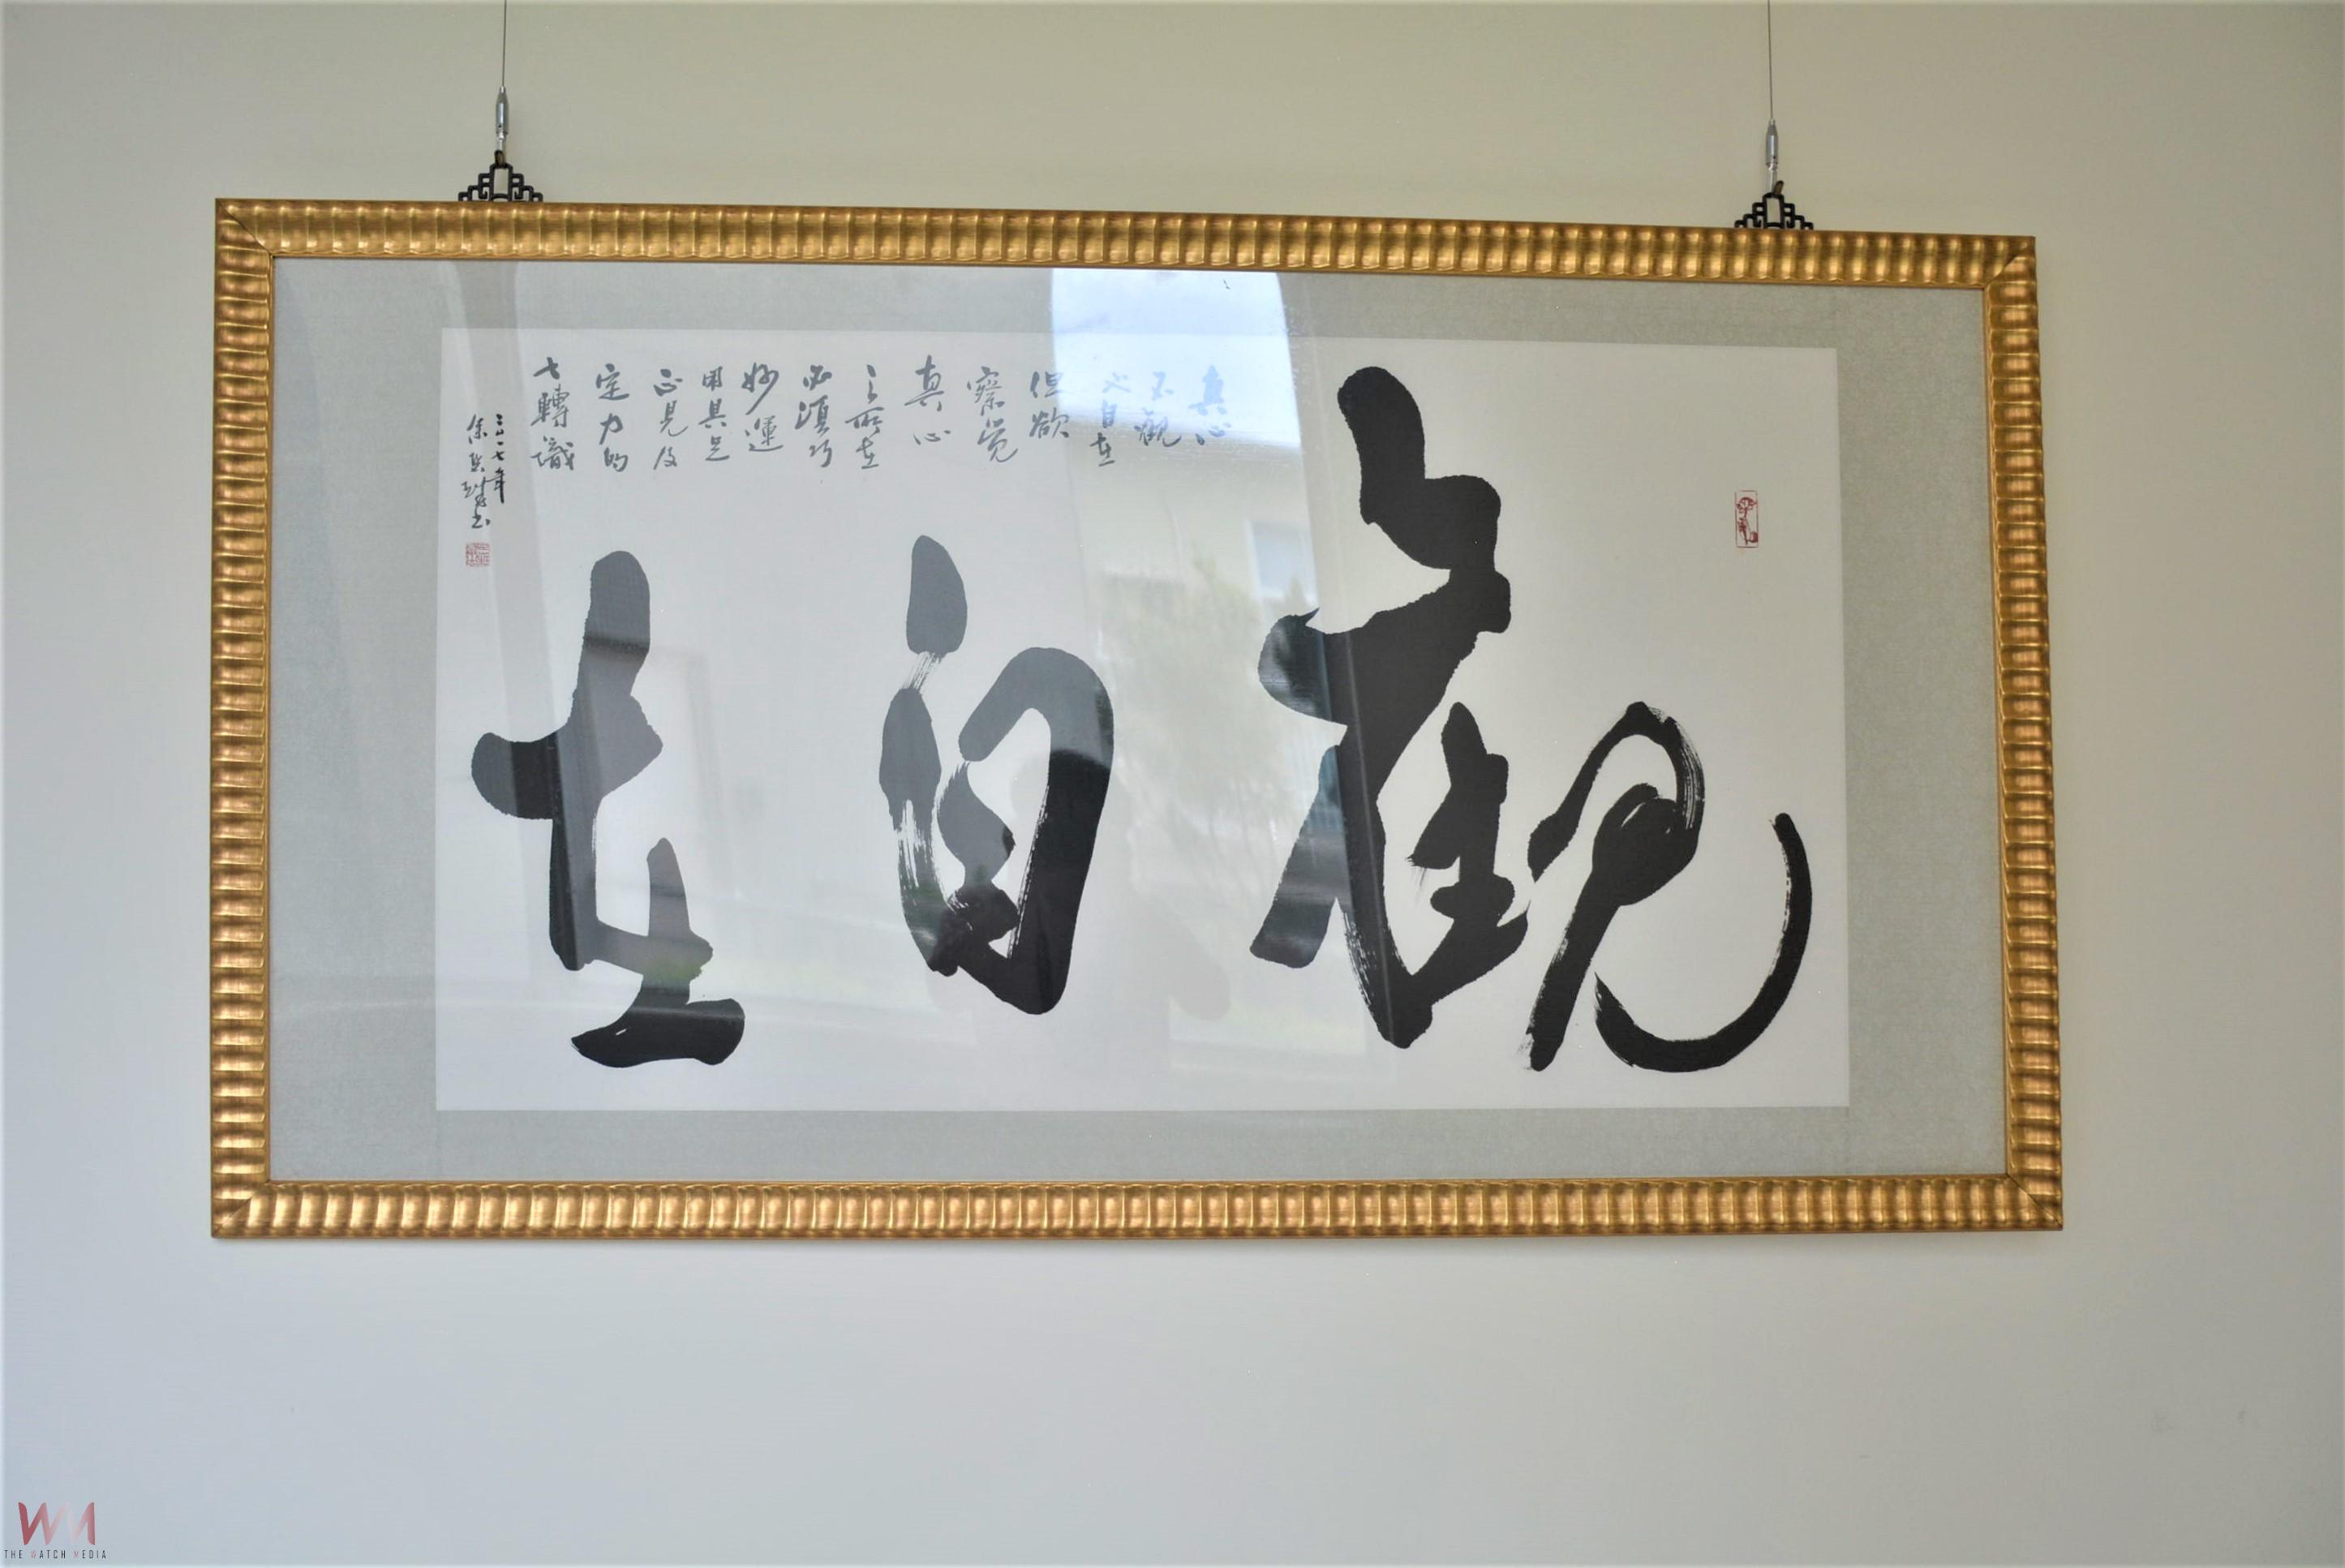 觀自在
真心
不觀
必自在
但欲
察覺
真心
之所在
必須巧
妙運
用具足
正見及
定力的
七轉識
二〇一七年
余
書
WM
THE WATCH MEDIA